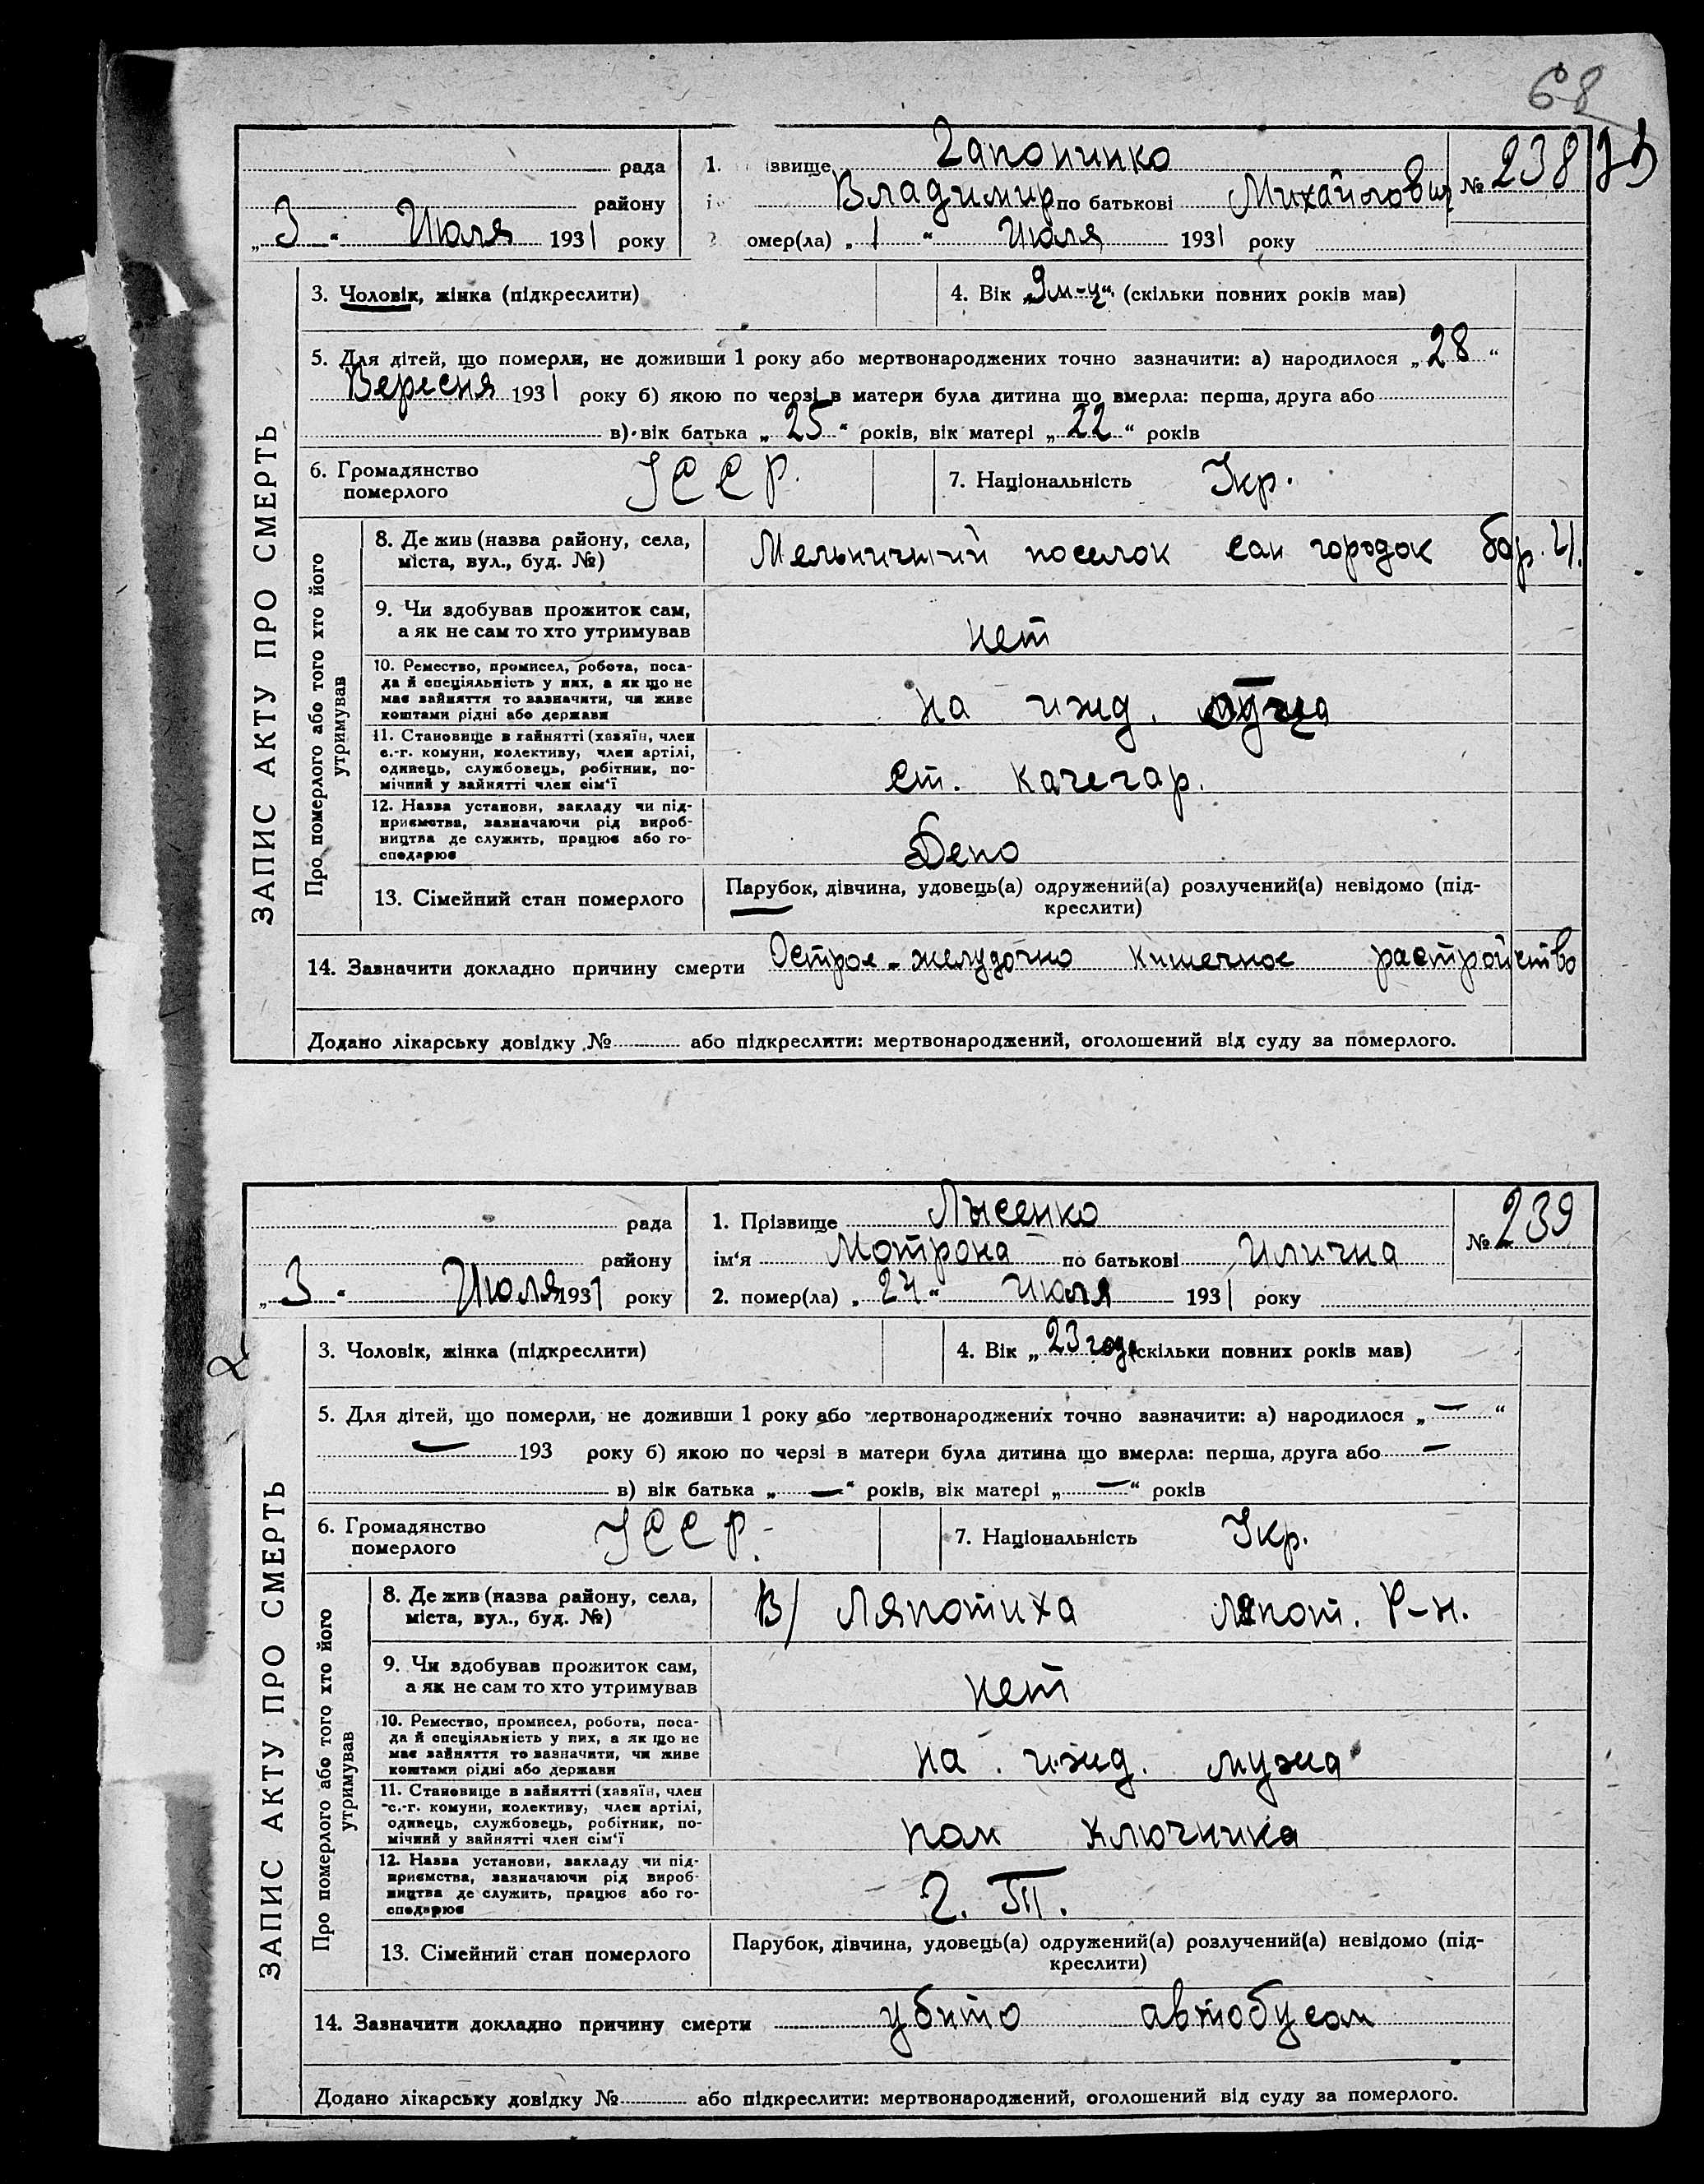 68
рада
району
„3“ Июля 1931 року
1. ізвище Гапонинко
Владимир по батькові Михайлович
№ 238
омер(ла) „1“ Июля 1931 року
ЗАПИС АКТУ ПРО СМЕРТЬ
3. Чоловік, жінка (підкреслити)
4. Вік „9 м-ц“ (скільки повних років мав)
5. Для дітей, що померли, не доживши 1 року або мертвонароджених точно зазначити: а) народилося „28“
Вересня 1931 року б) якою по черзі в матери була дитина що вмерла: перша, друга або
в) вік батька „25“ років, вік матері „22“ років
6. Громадянство
померлого
УССР.
7. Національність Укр.
Про померлого або того хто його
утримував
8. Де жив (назва району, села,
міста, вул., буд. №)
Мельничний поселок сан городок бар. 21.
9. Чи здобував прожиток сам,
а як не сам то хто утримував
нет
10. Ремество, промисел, робота, поса-
да й спеціяльність у них, а як що не
має зайняття то зазначити, чи живе
коштами рідні або держави
на ижд.
11. Становище в зайнятті (хазяїн, член
с.-г. комуни, колективу, член артілі,
одинець, службовець, робітник, по-
мічний у зайнятті член сім'ї
ст. качегар.
12. Назва установи, закладу чи під-
приємства, зазначаючи рід вироб-
ництва де служить, працює або го-
сподарює
Депо
13. Сімейний стан померлого
Парубок, дівчина, удовець(а) одружений(а) розлучений(а) невідомо (під-
креслити)
14. Зазначити докладно причину смерти Острое-желудочно кишечное растройство
Додано лікарську довідку № або підкреслити: мертвонароджений, оголошений від суду за померлого.
рада
району
„3“ Июля 1931 року
1. Прізвище Лысенко
ім'я Мотрона по батькові Илична
№ 239
2. помер(ла) „24“ Июля 1931 року
ЗАПИС АКТУ ПРО СМЕРТЬ
3. Чоловік, жінка (підкреслити)
4. Вік „23 года (скільки повних років мав)
5. Для дітей, що померли, не доживши 1 року або мертвонароджених точно зазначити: а) народилося „—“
— 193 року б) якою по черзі в матери була дитина що вмерла: перша, друга або —
в) вік батька „—“ років, вік матері „—“ років
6. Громадянство
померлого
УССР.
7. Національність Укр.
Про померлого або того хто його
утримував
8. Де жив (назва району, села,
міста, вул., буд. №)
В/ Ляпотиха Ляпот. Р-н.
9. Чи здобував прожиток сам,
а як не сам то хто утримував
нет
10. Ремество, промисел, робота, поса-
да й спеціяльність у них, а як що не
має зайняття то зазначити, чи живе
коштами рідні або держави
на ижд. мужа
11. Становище в зайнятті (хазяїн, член
с.-г. комуни, колективу, член артілі,
одинець, службовець, робітник, по-
мічний у зайнятті член сім'ї
пом ключника
12. Назва установи, закладу чи під-
приємства, зазначаючи рід вироб-
ництва де служить, працює або го-
сподарює
13. Сімейний стан померлого
Парубок, дівчина, удовець(а) одружений(а) розлучений(а) невідомо (під-
креслити)
14. Зазначити докладно причину смерти убито автобусом
Додано лікарську довідку № або підкреслити: мертвонароджений, оголошений від суду за померлого.